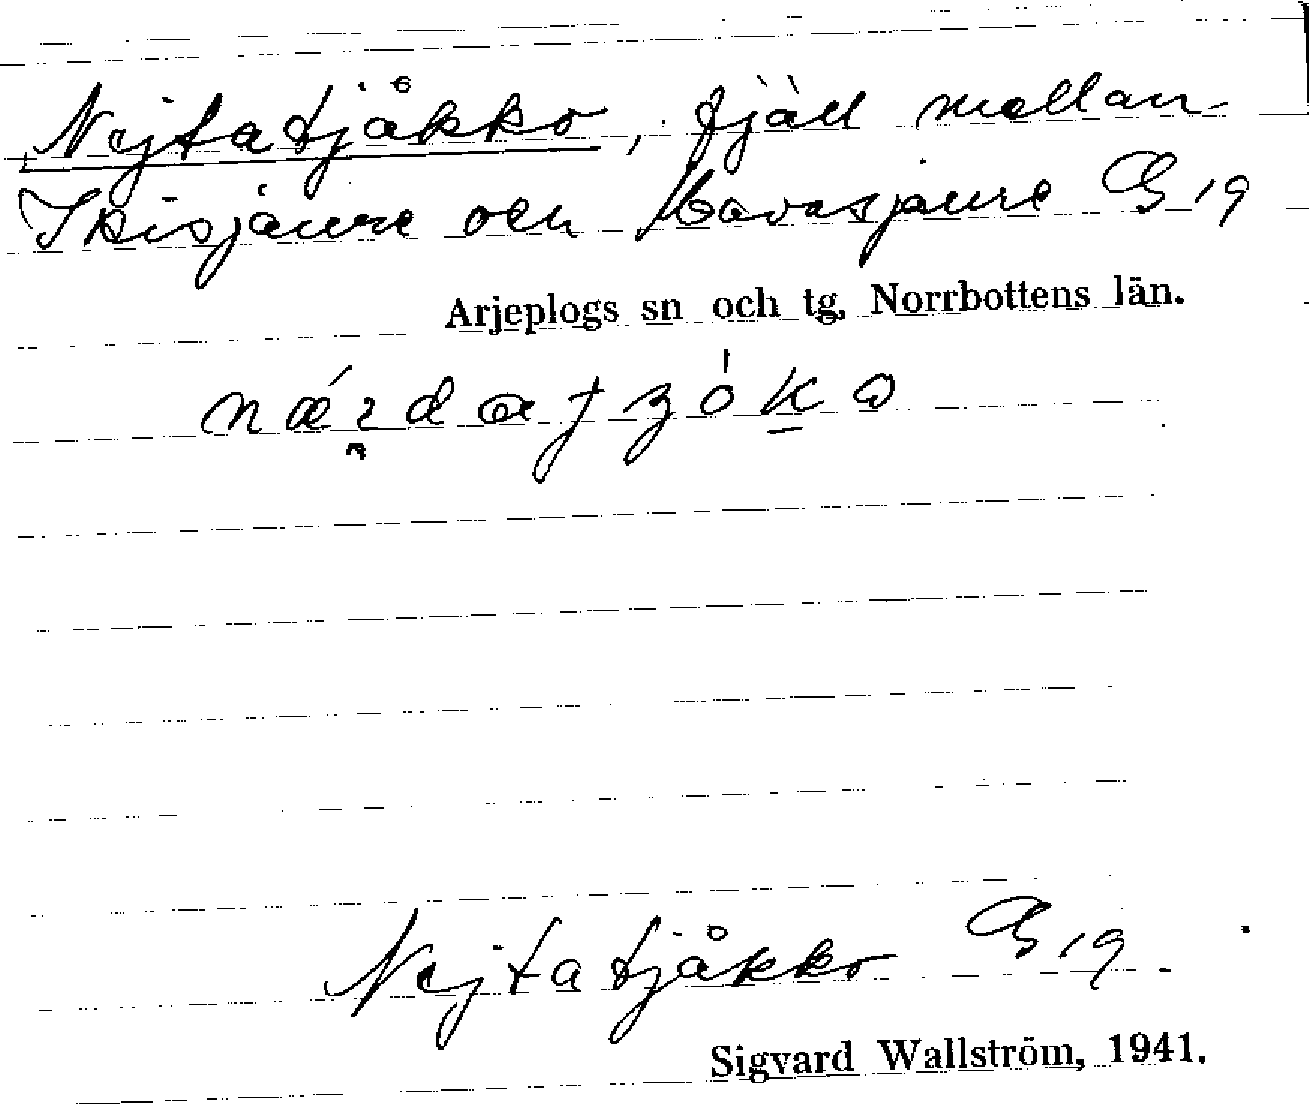 Nejtatjåkko, fjäll mellan
Ikisjaure och Mavasjaure G 19
Arjeplogs sn och tg, Norrbottens län.
Nejtatjåkko G 19
Sigvard Wallström, 1941.